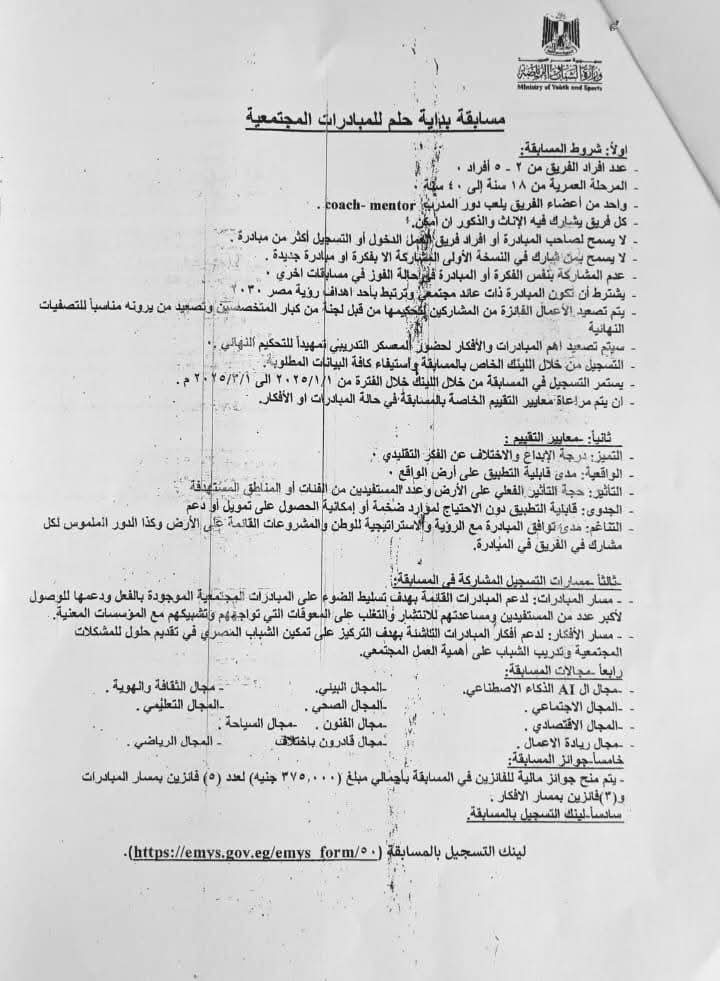 جمهورية مصر العربية
وزارة الشباب والرياضة
Ministry of Youth and Sports
مسابقة بداية حلم للمبادرات المجتمعية
اولاً: شروط المسابقة:
- عدد افراد الفريق من ٢ - ٥ أفراد .
- المرحلة العمرية من ١٨ سنة إلى ٤٠ سنة
- واحد من أعضاء الفريق يلعب دور المدرب coach- mentor .
- كل فريق يشارك فيه الإناث والذكور ان أمكن.
- لا يسمح لصاحب المبادرة أو افراد فريق العمل الدخول أو التسجيل أكثر من مبادرة .
- لا يسمح بمن شارك في النسخة الأولى المشاركة الا بفكرة او مبادرة جديدة .
- عدم المشاركة بنفس الفكرة أو المبادرة في حالة الفوز في مسابقات اخري .
- يشترط أن تكون المبادرة ذات عائد مجتمعي وترتبط بأحد اهداف رؤية مصر ٢٠٣٠
- يتم تصعيد الأعمال الفائزة من المشاركين لتحكيمها من قبل لجنة من كبار المتخصصين وتصعيد من يرونه مناسباً للتصفيات
النهائية
- سيتم تصعيد اهم المبادرات والأفكار لحضور المعسكر التدريبي تمهيداً للتحكيم النهائي .
- التسجيل من خلال اللينك الخاص بالمسابقة وأستيفاء كافة البيانات المطلوبة.
- يستمر التسجيل في المسابقة من خلال اللينك خلال الفترة من ٢٠٢٥/١/١ الى ٢٠٢٥/٣/١ م .
- ان يتم مراعاة معايير التقييم الخاصة بالمسابقة في حالة المبادرات او الأفكار.
ثانياً: -معايير التقييم :
- التميز: درجة الإبداع والاختلاف عن الفكر التقليدي .
- الواقعية: مدى قابلية التطبيق على أرض الواقع .
- التأثير: حجة التأثير الفعلي على الأرض وعدد المستفيدين من الفئات أو المناطق المستهدفة
- الجدوى: قابلية التطبيق دون الاحتياج لموارد ضخمة أو إمكانية الحصول على تمويل أو دعم
- التناغم: مدى توافق المبادرة مع الرؤية والاستراتيجية للوطن والمشروعات القائمة على الأرض وكذا الدور الملموس لكل
مشارك في الفريق في المبادرة.
-ثالثاً -مسارات التسجيل المشاركة فى المسابقة:
- - مسار المبادرات: لدعم المبادرات القائمة بهدف تسليط الضوء على المبادرات المجتمعية الموجودة بالفعل ودعمها للوصول
لأكبر عدد من المستفيدين ومساعدتهم للانتشار والتغلب على المعوقات التي تواجههم وتشبيكهم مع المؤسسات المعنية.
- - مسار الأفكار: لدعم أفكار المبادرات الناشئة بهدف التركيز على تمكين الشباب المصري في تقديم حلول للمشكلات
المجتمعية وتدريب الشباب على أهمية العمل المجتمعي.
رابعاً -مجالات المسابقة:
- -مجال ال AI الذكاء الاصطناعي. -المجال البيئي. - مجال الثقافة والهوية .
- -المجال الاجتماعي . -المجال الصحي . -المجال التعليمي .
- -المجال الاقتصادي . -مجال الفنون . -مجال السياحة .
- -مجال ريادة الاعمال . -مجال قادرون باختلاف - المجال الرياضي .
خامساً-جوائز المسابقة:
- يتم منح جوائز مالية للفائزين في المسابقة بأجمالي مبلغ (٣٧٥,٠٠٠ جنيه) لعدد (٥) فائزين بمسار المبادرات
و(٣)فائزين بمسار الافكار .
سادساً-لينك التسجيل بالمسابقة.
لينك التسجيل بالمسابقة (https://emys.gov.eg/emys_form/٥٠).